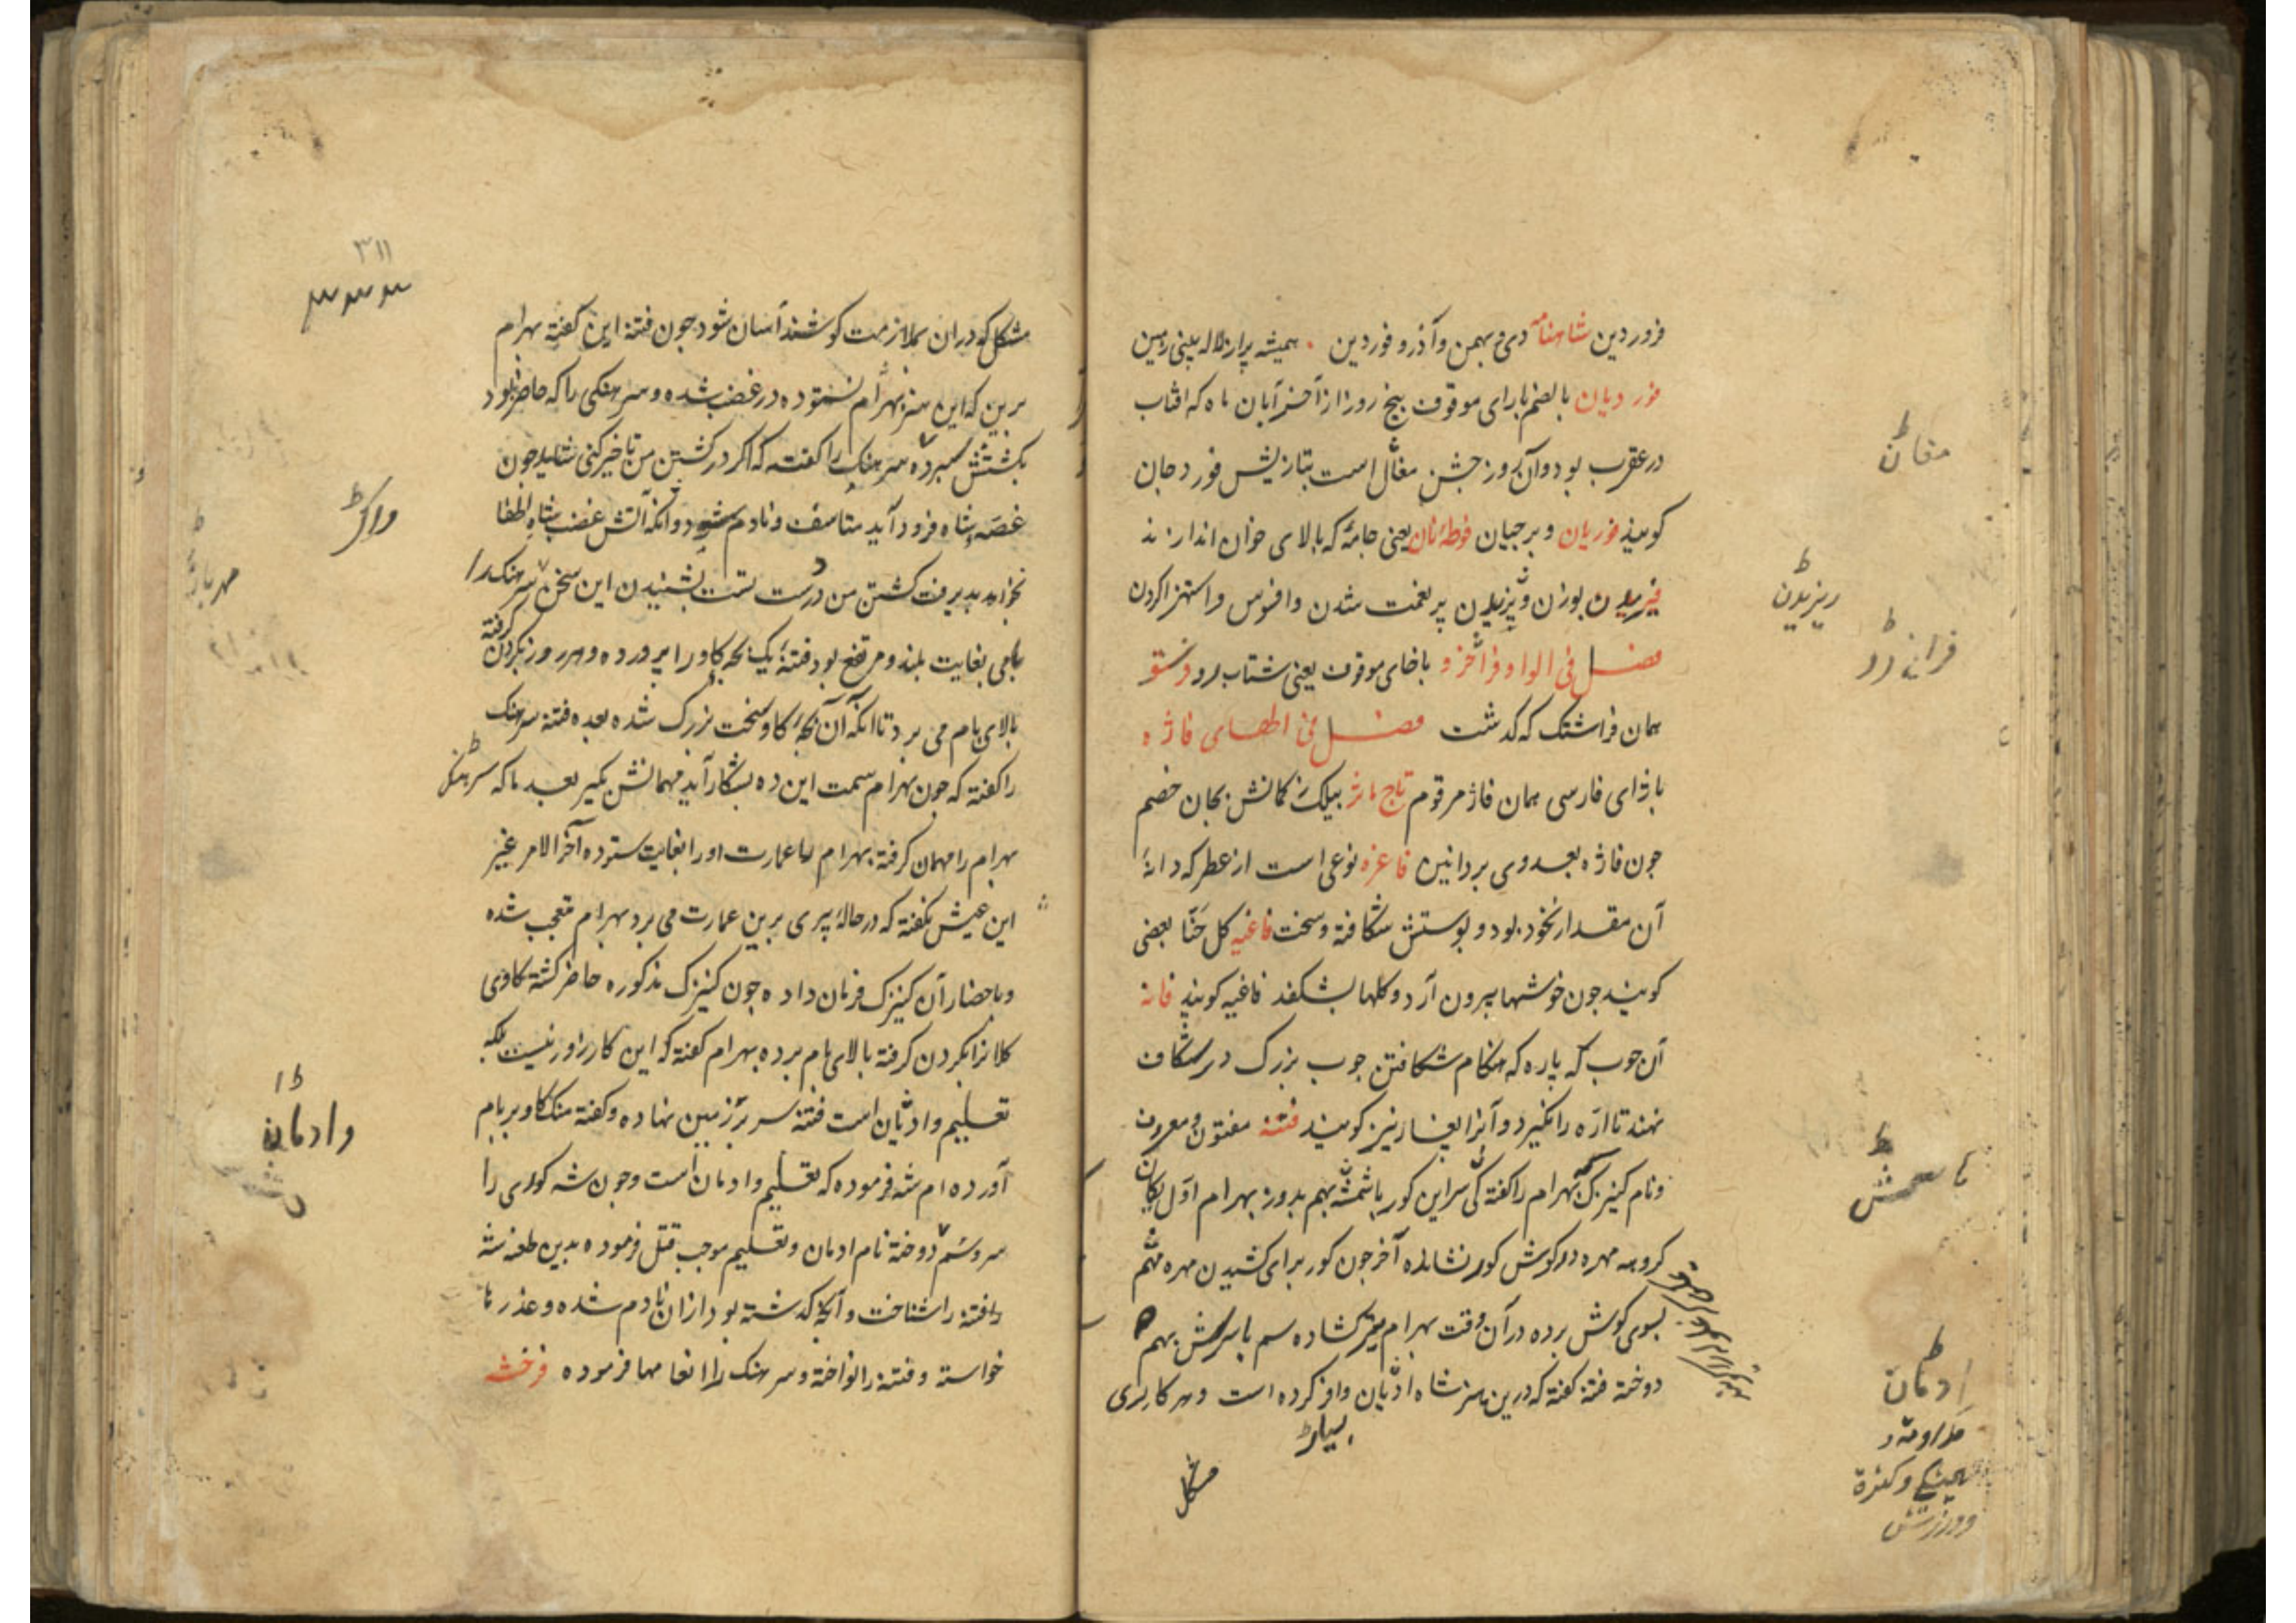 فروردین شاهنامه دی و بهمن و آذر و فوردین همیشه پر از لاله بینی زمین
فوردیان بالضم بارای موقوف پنج روز از آخر آبان ماه که افتاب
در عقرب بود و آن روز جشن مغان است بتازیش فوردجان
کویند فوریان و برجیان فوطه نان یعنی جامهٔ که بالای خوان اندازند
فیریدن بوزن پر نعمت شدن و افسوس و استهزا کردن
فصل فی الواو فراخ رو باخای موقوف یعنی شتاب رو
همان فراشتک که کدشت فصل فی الهای فاژه
باژای فارسی همان فاژ مرقوم تاج ماثر بیلک ز کمانش بجان خصم
جون فاژه بعدوی بر دانین فاغره نوعی است از عطر که دانهٔ
آن مقدار نخود بود و بوستش شکافته و سخت فاغیه کل حنا بعضی
کویند جون خوشها بیرون آرد و کلها بشکفد فاغیه کویند فانه
آن جوب که باره که هنکام شکافتن جوب بزرک در شکاف
نهند تا اره را نکیرد و آنرا بغاز نیز کویند فتنه مفتون و معروف
و نام کنیزک بهرام را کفته کی سر این کور باسمش بهم بدوز بهرام اول بکمان
کروهه مهره در کوش کور نشانده آخر جون کور برای کشیدن مهره سم
بسوی کوش برده در آن وقت بهرام تیر کشاده سم با سرش بهم
دوخته فتنه کفته که درین هنر شاه ادمان وافر کرده است و هر کاری
بسیار
مشکل
مغان
فراخ رو
باسمش
ادمان
۳۱۱
مشکل که در ان بملازمت کوشند آسان شود جون فتنه این کفته بهرام
برین که این هنر بهرام نستوده در غضب شده و سرهنکی را که حاضر بود
بکشتنش سپرده سرهنک را کفته که اکر در کشتن من تاخیر کنی شاید جون
غصه شاه فرود آید متاسف و نادم شود و انکه آتش غضب شاه اطفا
نخواهد پدیرفت کشتن من درست تست بشنیدن این سخن سرهنک را
بامی بغایت بلند و مرتفع بود فتنه یک بچه کاو را پرورده و هر روز بکردن کرفته
بالای بام می برد تا انکه آن بچه کاو سخت بزرک شده بعده فتنه سرهنک
را کفته که جون بهرام سمت این ده بشکار آید مهمانش بکیر بعد ما که سرهنک
بهرام را مهمان کرفته بهرام عمارت او را بغایت ستوده آخر الامر غیر
این عیش بکفته که در حالهٔ پیری برین عمارت می برد بهرام متعجب شده
و باحضار آن کنیزک فرمان داده جون کنیزک مذکوره حاضر کشته کاوی
کلانرا بکردن کرفته بالای بام برده بهرام کفته که این کار زاور نیست بلکه
تعلیم و ادمان است فتنه سر بر زمین نهاده و کفته منک کاو بر بام
آورده ام شه فرموده که تعلیم و ادمان است و جون شه کوری را
سر و سم دوخته نام ادمان و تعلیم موجب قتل فرموده بدین طعنه شه
فتنه را شناخت و آنکه کدشته بود از ان نادم شده و عذرها
خواسته و فتنه را نواخته و سرهنک را انعامها فرموده فرخشه
وادمان